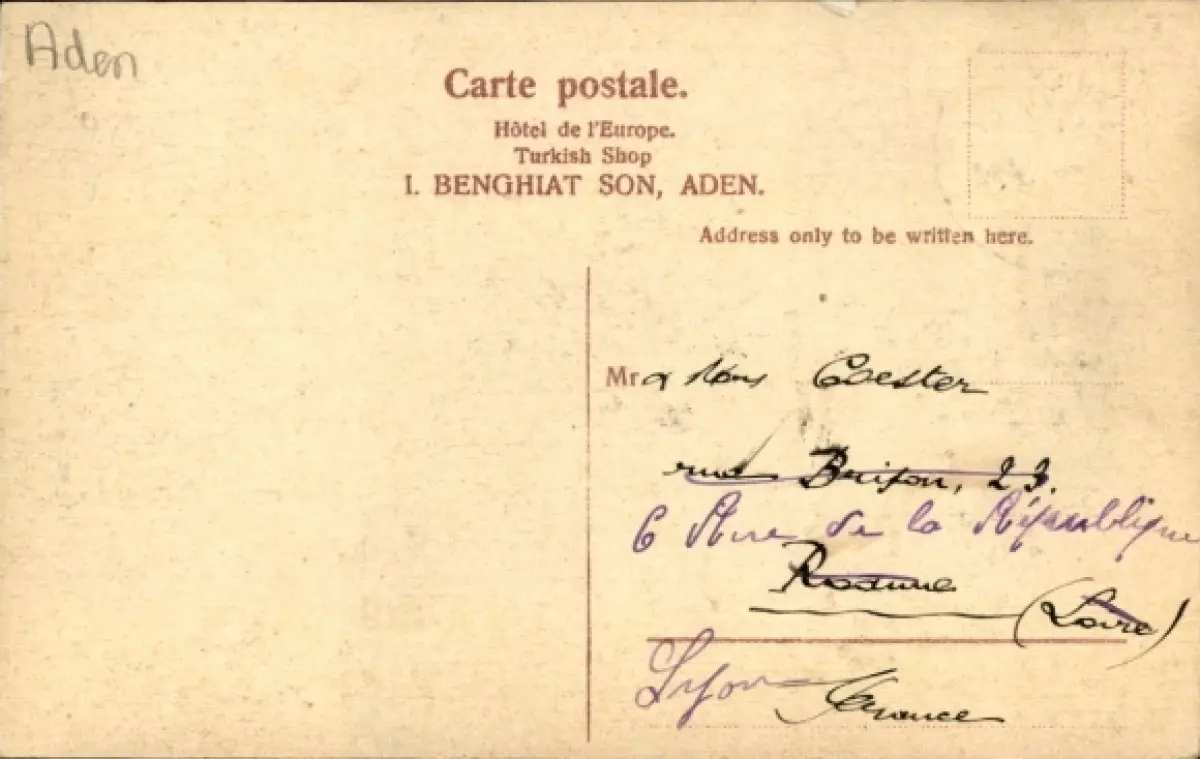 Aden
Carte postale.
Hôtel de l'Europe.
Turkish Shop
I. BENGHIAT SON, ADEN.
Address only to be written here.
Mr & Mme Coester
rue Brison, 23.
6 Rue de la République
Roanne
(Loire)
Lyon France